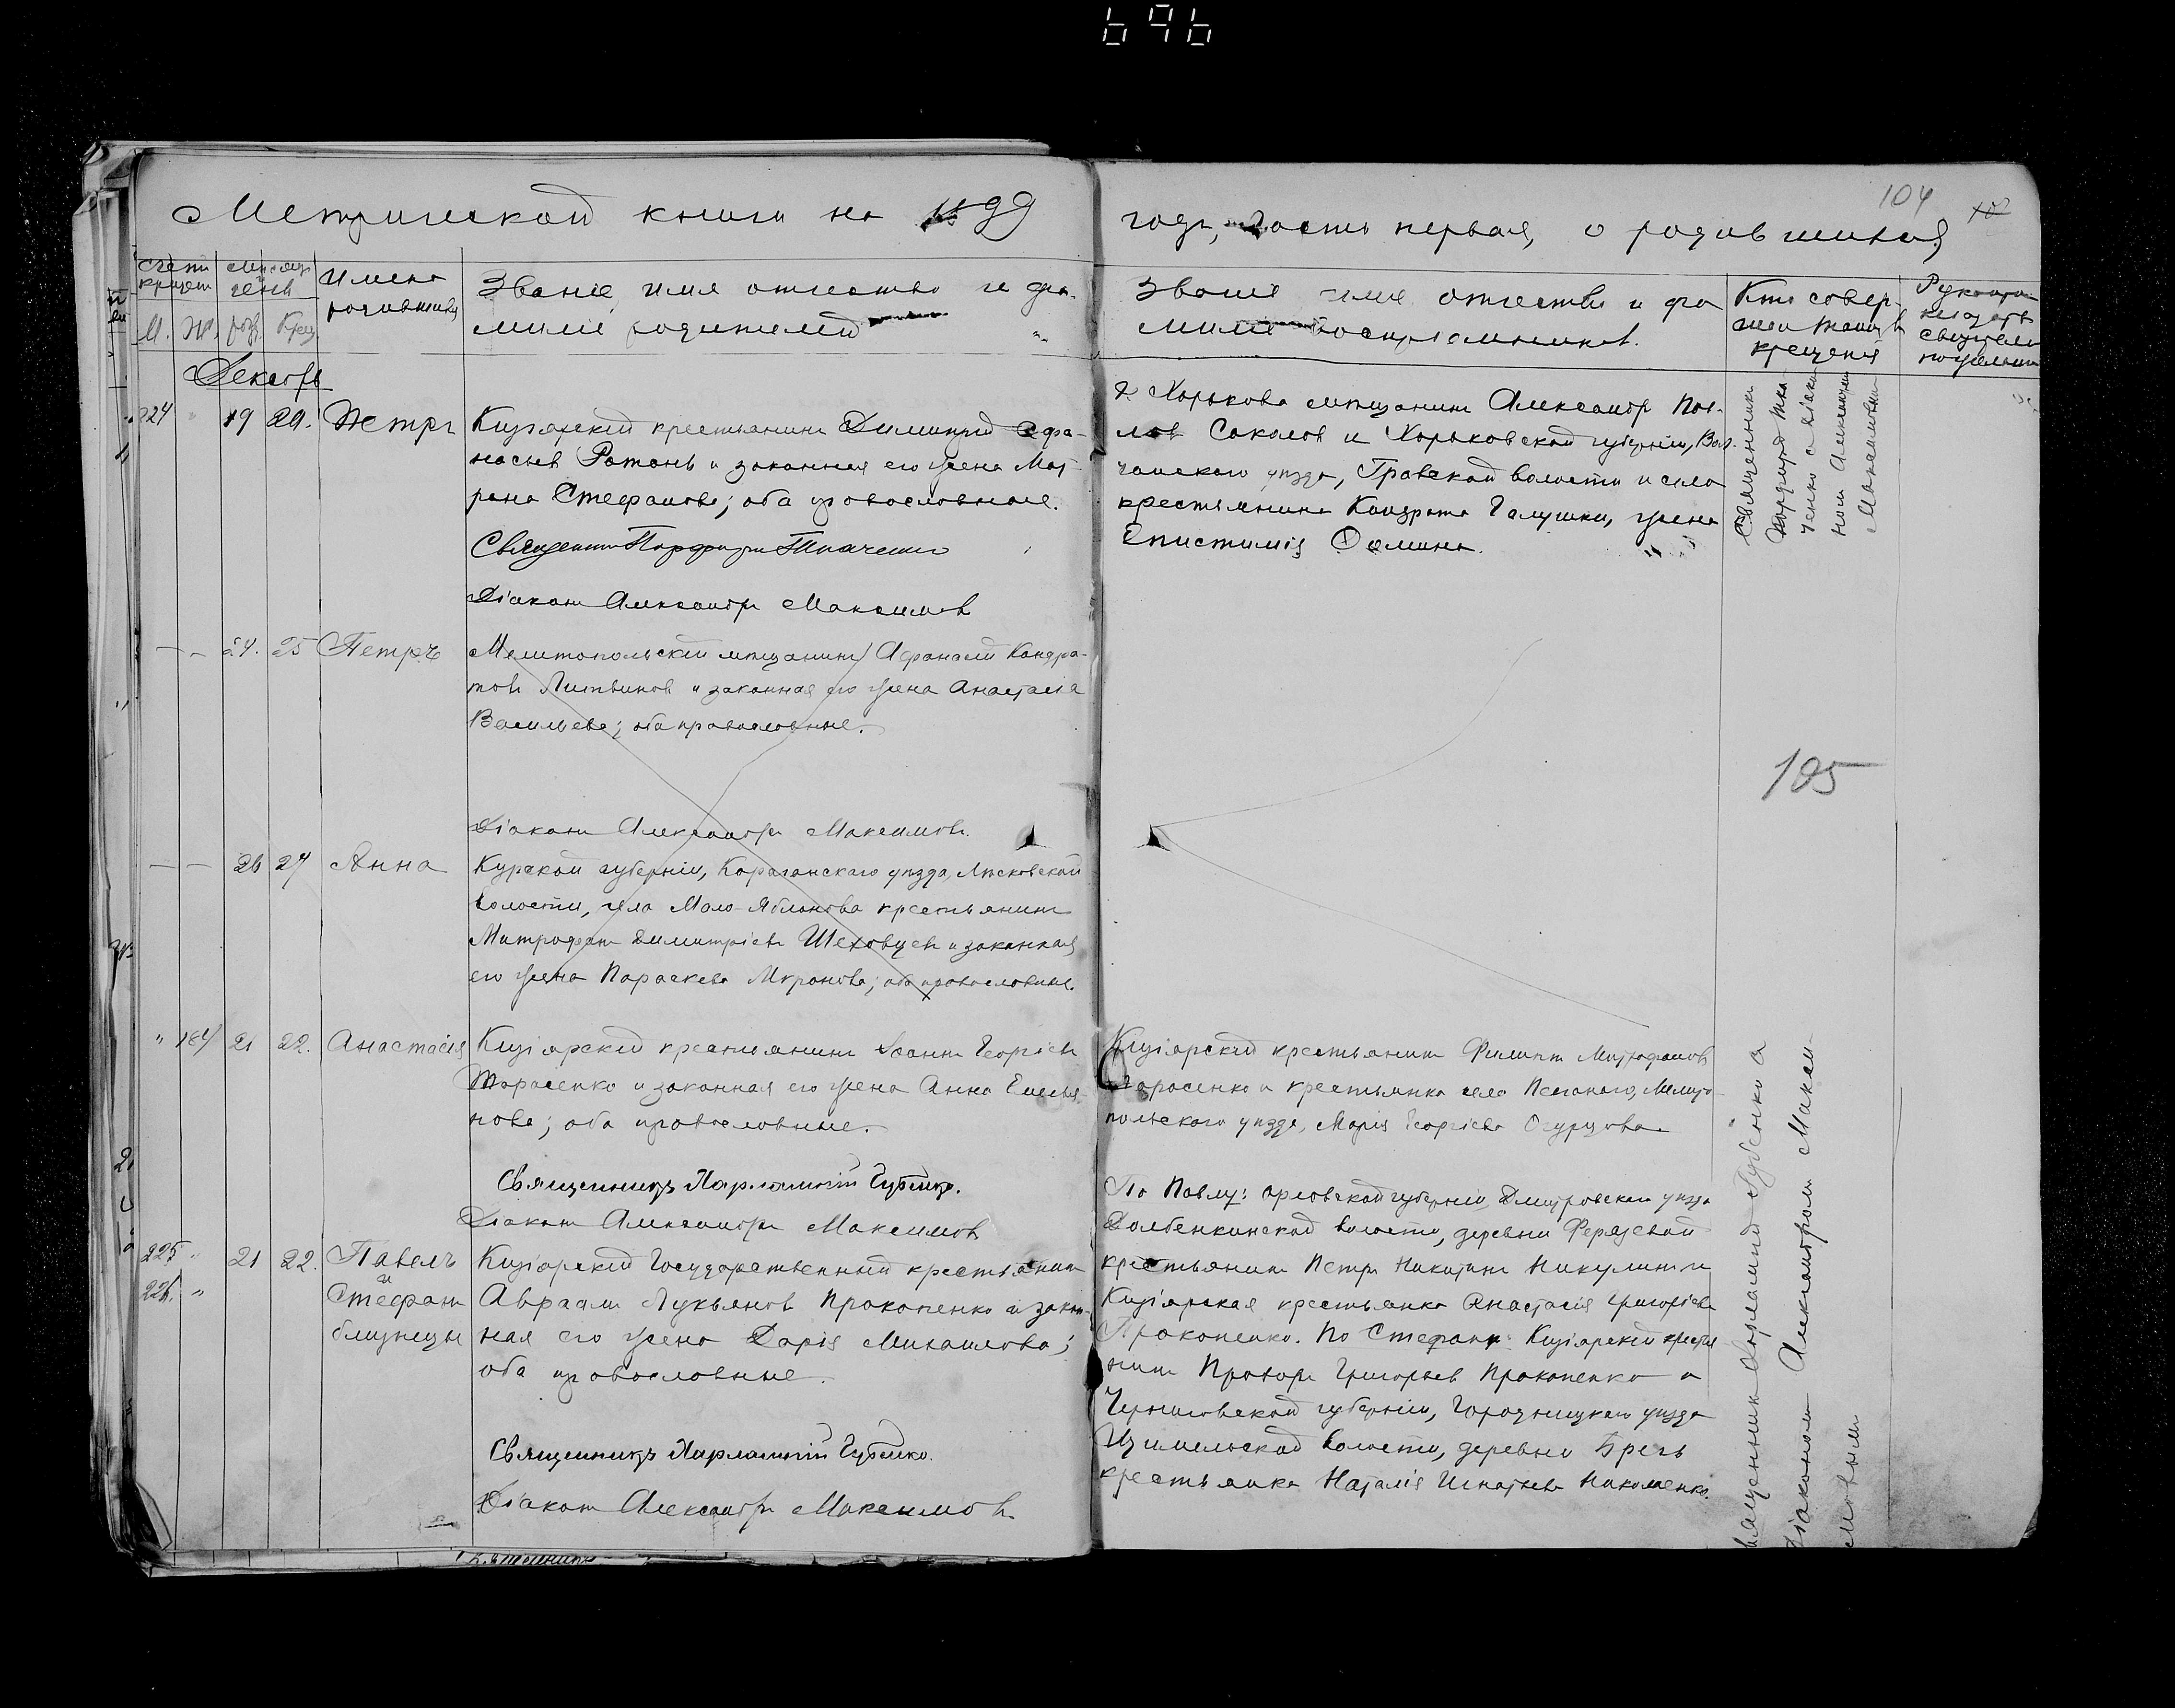 696
104
Метрической книги на 1899
годъ, часть первая, о родившихся
Счетъ
М. Ж.
Мѣсяцъ
день
Имена
родившихся
Званіе, имя отчество и фа-
милія родителей
Званіе имя отчество и фа
милія воспріемниковъ.
Кто совер-
крещенія
Декабрь
224 19 29. Петръ
Кизіярскій крестьянинъ Димитрій Афа-
насьев Ротань и законная его жена Мат-
рона Стефанова; оба православные.
Священникъ Порфирій Ткаченко
Діаконъ Александръ Максимовъ
г. Харькова мѣщанинъ Александръ Пав-
ловъ Соколовъ и Харьковской губерніи, Вол-
чанского уѣзда, Графской волости и села
крестьянина Кондрата Галушки, жена
Епистимія Фомина.
Священникъ
Порфирій Тка-
ченко с діако-
номъ Александромъ
Максимовымъ
— — 24. 25 Петръ
Мелитопольскій мѣщанинъ Афанасій Кондра-
товъ Литвиновъ и законная его жена Анастасія
Васильева; оба православные.
Діаконъ Александръ Максимовъ.
105
— — 26 27 Анна
Курской губерніи, Корочанскаго уѣзда,
волости, села Мало-Яблонова крестьянинъ
Митрофанъ Димитріевъ Шеховцевъ и законная
его жена Параскева Миронова; оба православные.
" 184 21 22. Анастасія
Кизіярскій крестьянинъ Іоаннъ Георгіевъ
Тарасенко и законная его жена Анна Емелья-
нова; оба православные.
Священникъ Харлампій Губенко.
Діаконъ Александръ Максимовъ
Кизіярскій крестьянинъ Филиппъ Митрофановъ
Тарасенко и крестьянка села Песчаного, Мелито-
польского уѣзда, Марія Георгіева Огурцова
225 " 21 22. Павелъ
226. " и
Стефанъ
близнецы
Кизіярскій Государственный крестьянинъ
Авраамъ Лукьяновъ Прокопенко и закон-
ная его жена Дарія Михаилова;
оба православные.
Священникъ Харлампій Губенко.
Діаконъ Александръ Максимовъ
По Павлу: Орловской губерніи, Дмитровскаго уѣзда
Долбенкинской волости, деревни
крестьянинъ Петръ Никитинъ Никулинъ и
Кизіярская крестьянка Анастасія Григоріева
Прокопенко. По Стефану: Кизіярскій крестья
нинъ Григорьевъ Прокопенко и
Черниговской губерніи, Городницкаго уѣзда
волости, деревни Бречъ
крестьянка Наталія Игнатьева Николаенко.
Священникъ Харлампій Губенко с
Діакономъ Александромъ Макси-
мовымъ